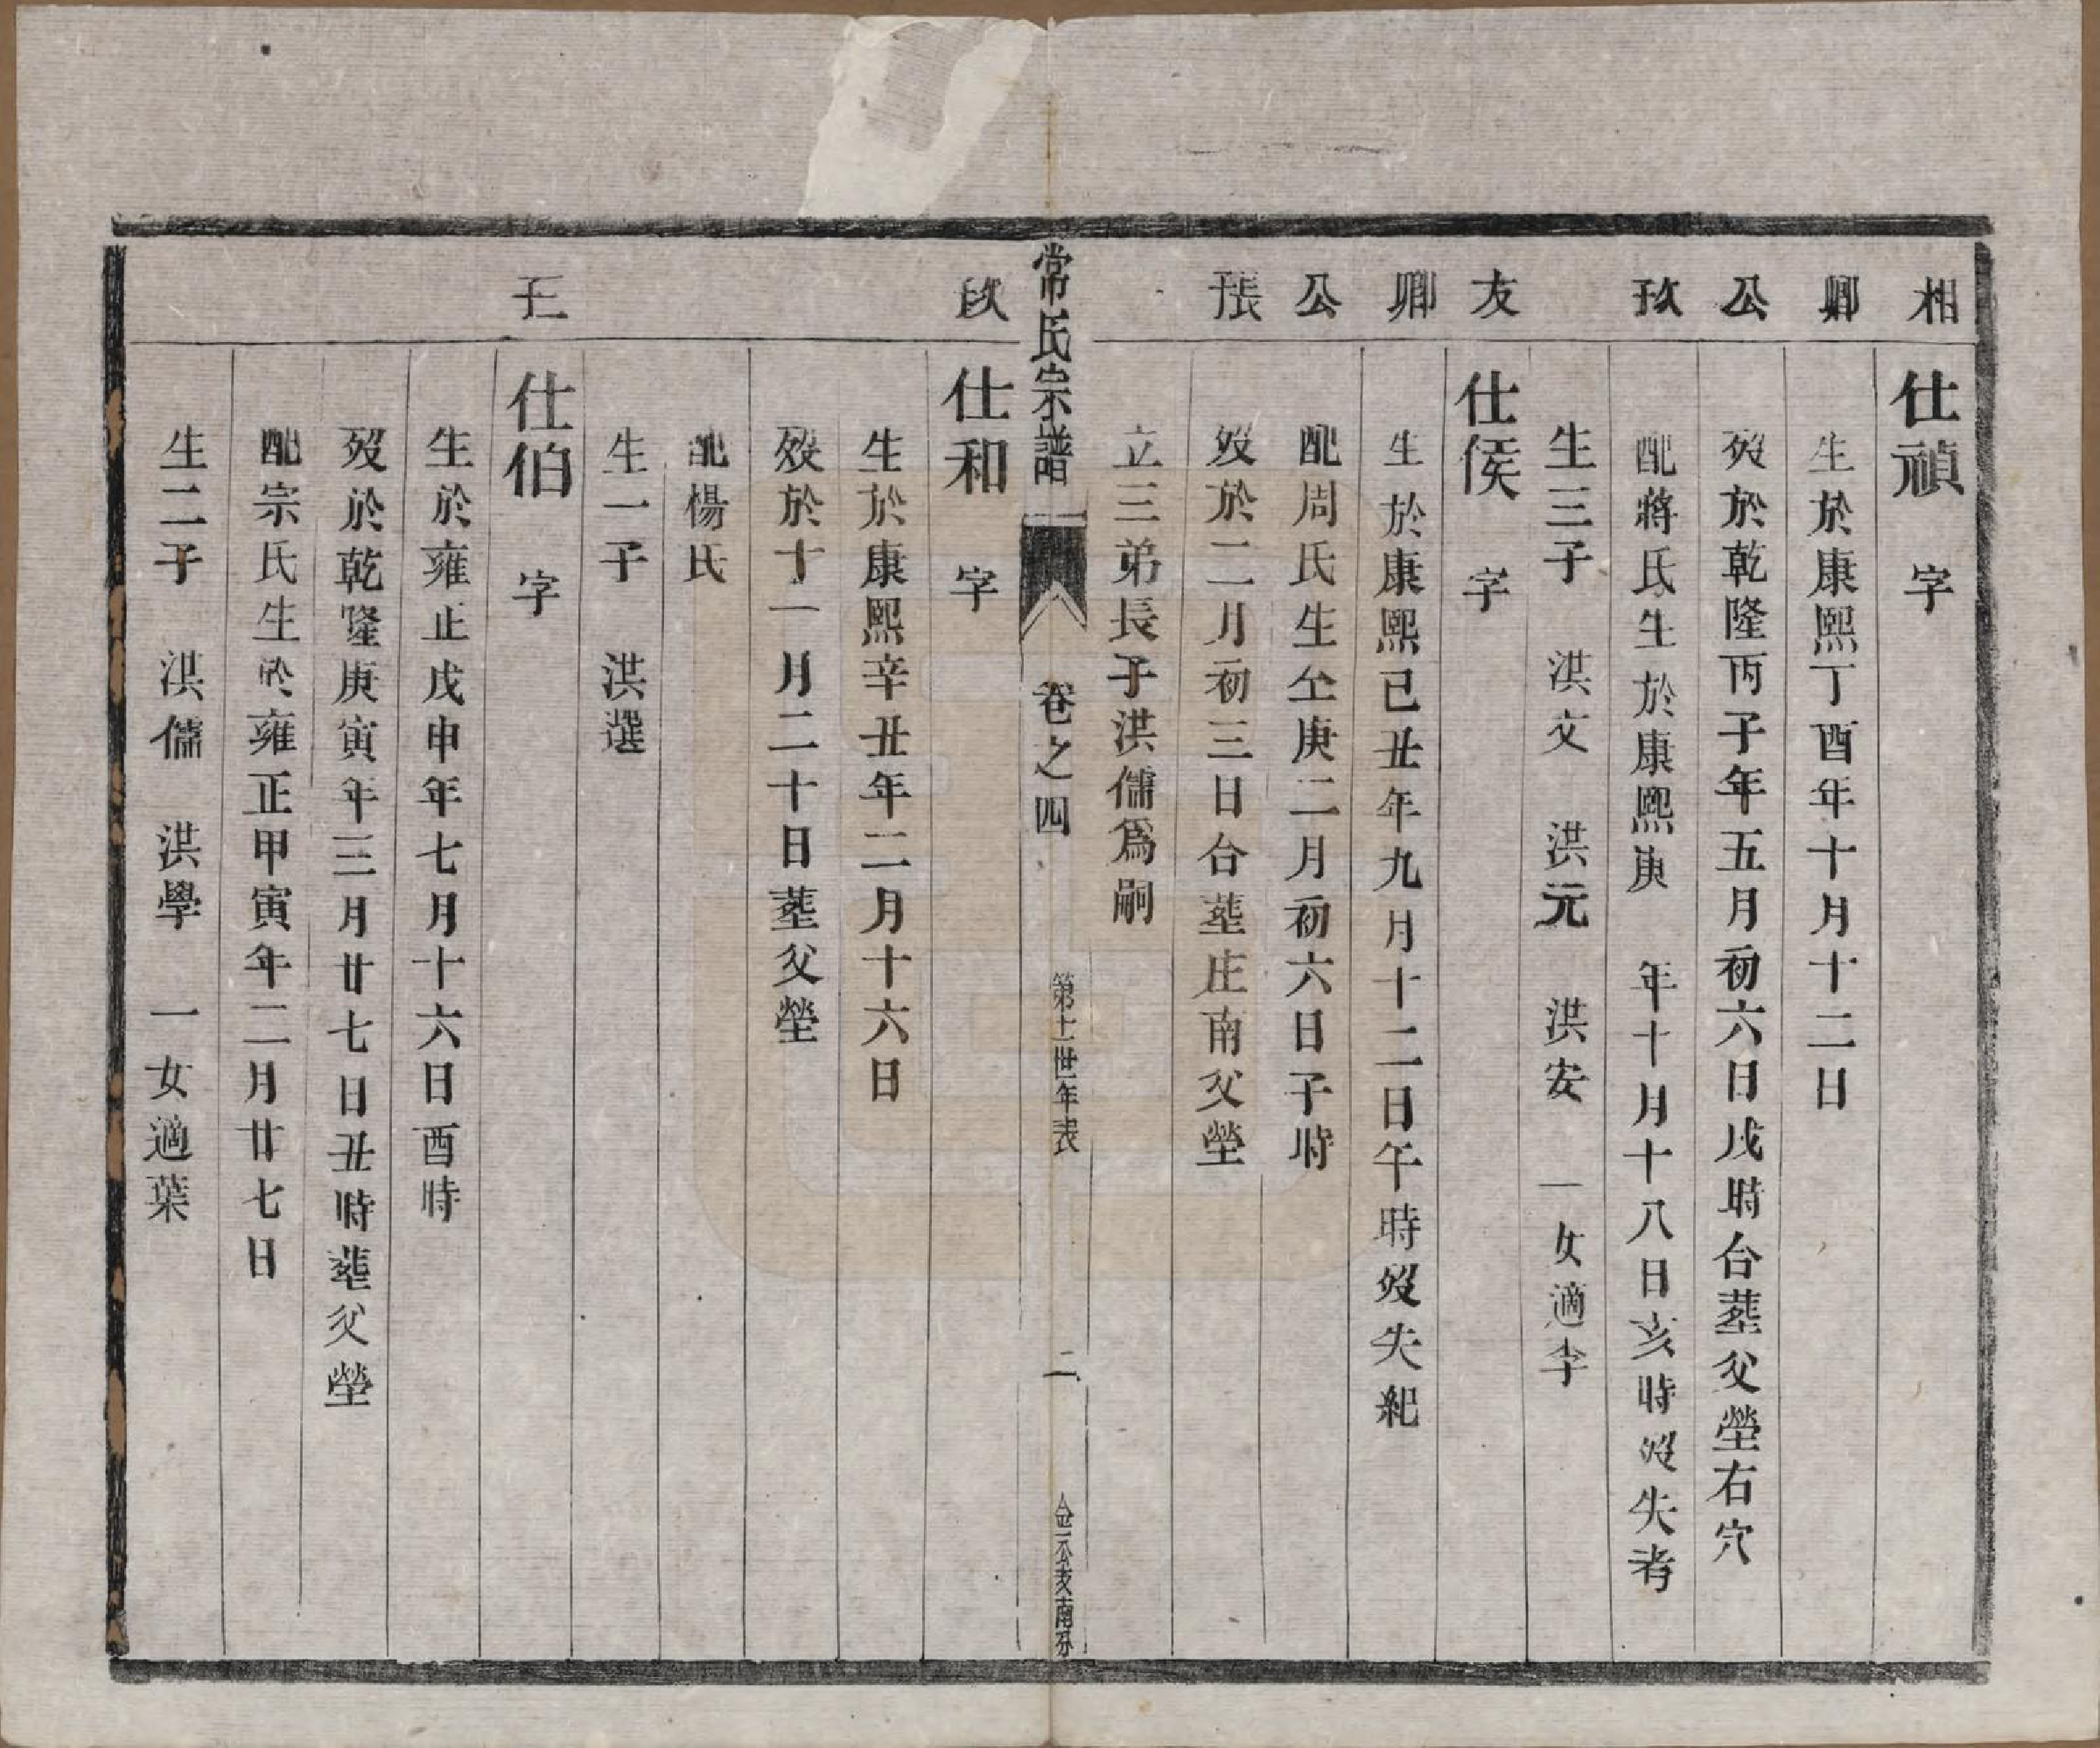 相
仕禎　字
卿
生於康熙丁酉年十月十二日
公
歿於乾隆丙子年五月初六日戌時合葬父塋右穴
玫
配蔣氏生於康熙庚　年十月十八日亥時歿失考
生三子　洪文　洪元　洪安　一女適李
友
仕侯　字
卿
生於康熙己丑年九月十二日午時歿失紀
公
配周氏生仝庚二月初六日子時
張
歿於二月初三日合葬庄南父塋
立三弟長子洪儒爲嗣
常氏宗譜　卷之四　第十世年表　二　公支南分
仕和　字
生於康熙辛丑年二月十六日
歿於十一月二十日葬父塋
配楊氏
生一子　洪選
王
仕伯　字
生於雍正戊申年七月十六日酉時
歿於乾隆庚寅年三月廿七日丑時葬父塋
配宗氏生於雍正甲寅年二月廿七日
生二子　洪儒　洪學　一女適葉